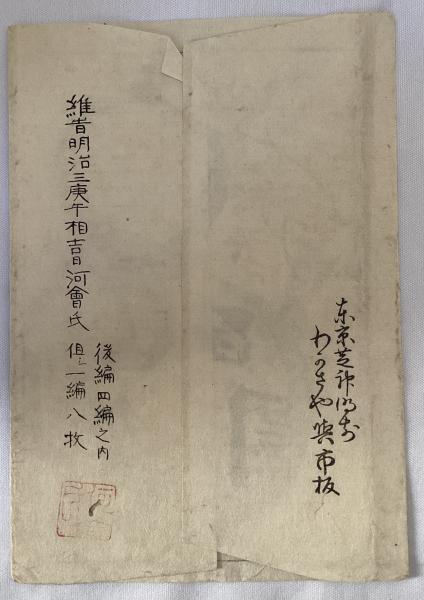 東京芝神明前
わかさや與市板
維昔明治三庚午相吉日河會氏
後編四編之内
但シ一編八枚